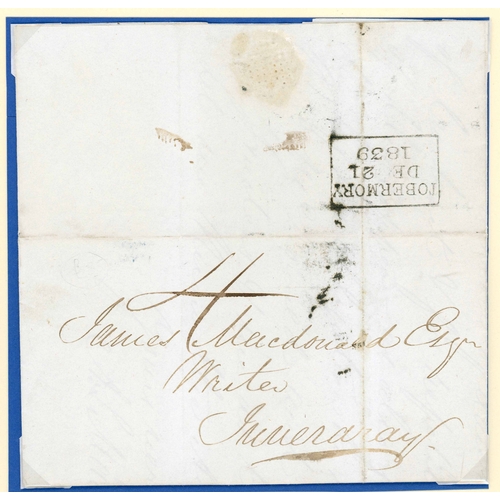 TOBERMORY
DE 21
1839
4
James Macdonald Esqr
Writer
Inverary